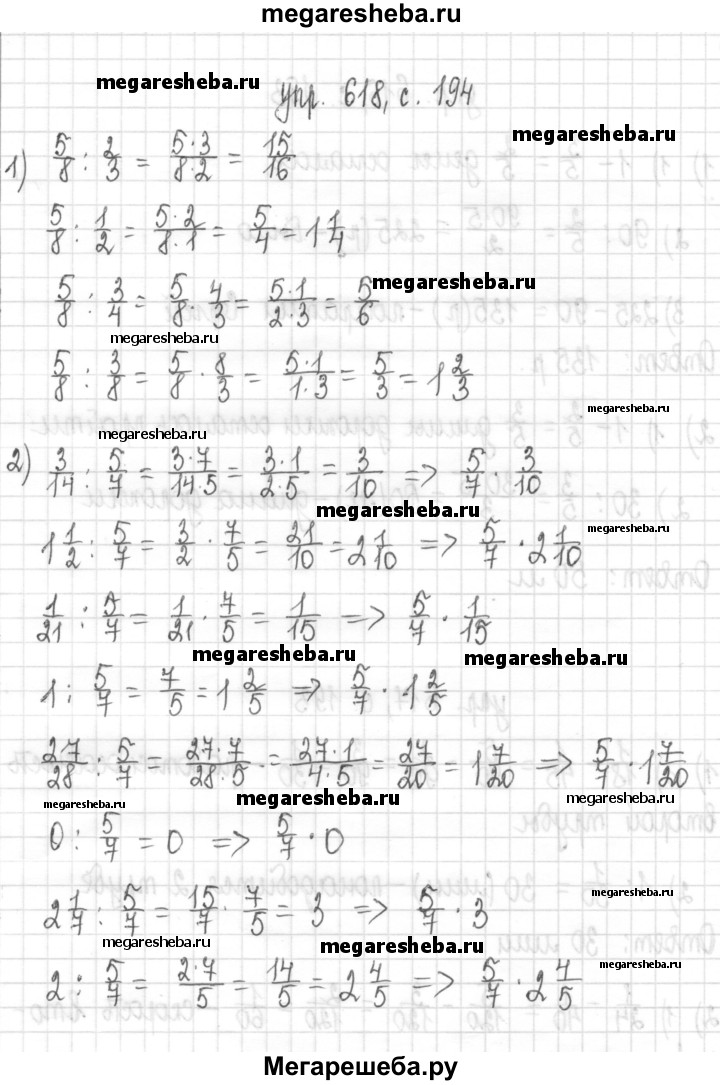 megaresheba.ru
megaresheba.ru
упр. 618, с. 194
megaresheba.ru
1) 5/8 : 2/3 = 5·3/8·2 = 15/16
5/8 : 1/2 = 5·2/8·1 = 5/4 = 1 1/4
megaresheba.ru
5/8 : 3/4 = 5/8 · 4/3 = 5·1/2·3 = 5/6
megaresheba.ru
5/8 : 3/8 = 5/8 · 8/3 = 5·1/1·3 = 5/3 = 1 2/3
megaresheba.ru
megaresheba.ru
2) 3/14 : 5/7 = 3·7/14·5 = 3·1/2·5 = 3/10 => 5/7 · 3/10
megaresheba.ru
megaresheba.ru
1 1/2 : 5/7 = 3/2 · 7/5 = 21/10 = 2 1/10 => 5/7 · 2 1/10
1/21 : 5/7 = 1/21 · 7/5 = 1/15 => 5/7 · 1/15
megaresheba.ru
megaresheba.ru
1 : 5/7 = 7/5 = 1 2/5 => 5/7 · 1 2/5
27/28 : 5/7 = 27·7/28·5 = 27·1/4·5 = 27/20 = 1 7/20 => 5/7 · 1 7/20
megaresheba.ru
megaresheba.ru
megaresheba.ru
0 : 5/7 = 0 => 5/7 · 0
megaresheba.ru
2 1/7 : 5/7 = 15/7 · 7/5 = 3 => 5/7 · 3
megaresheba.ru
megaresheba.ru
megaresheba.ru
2 : 5/7 = 2·7/5 = 14/5 = 2 4/5 => 5/7 · 2 4/5
Мегарешеба.ру